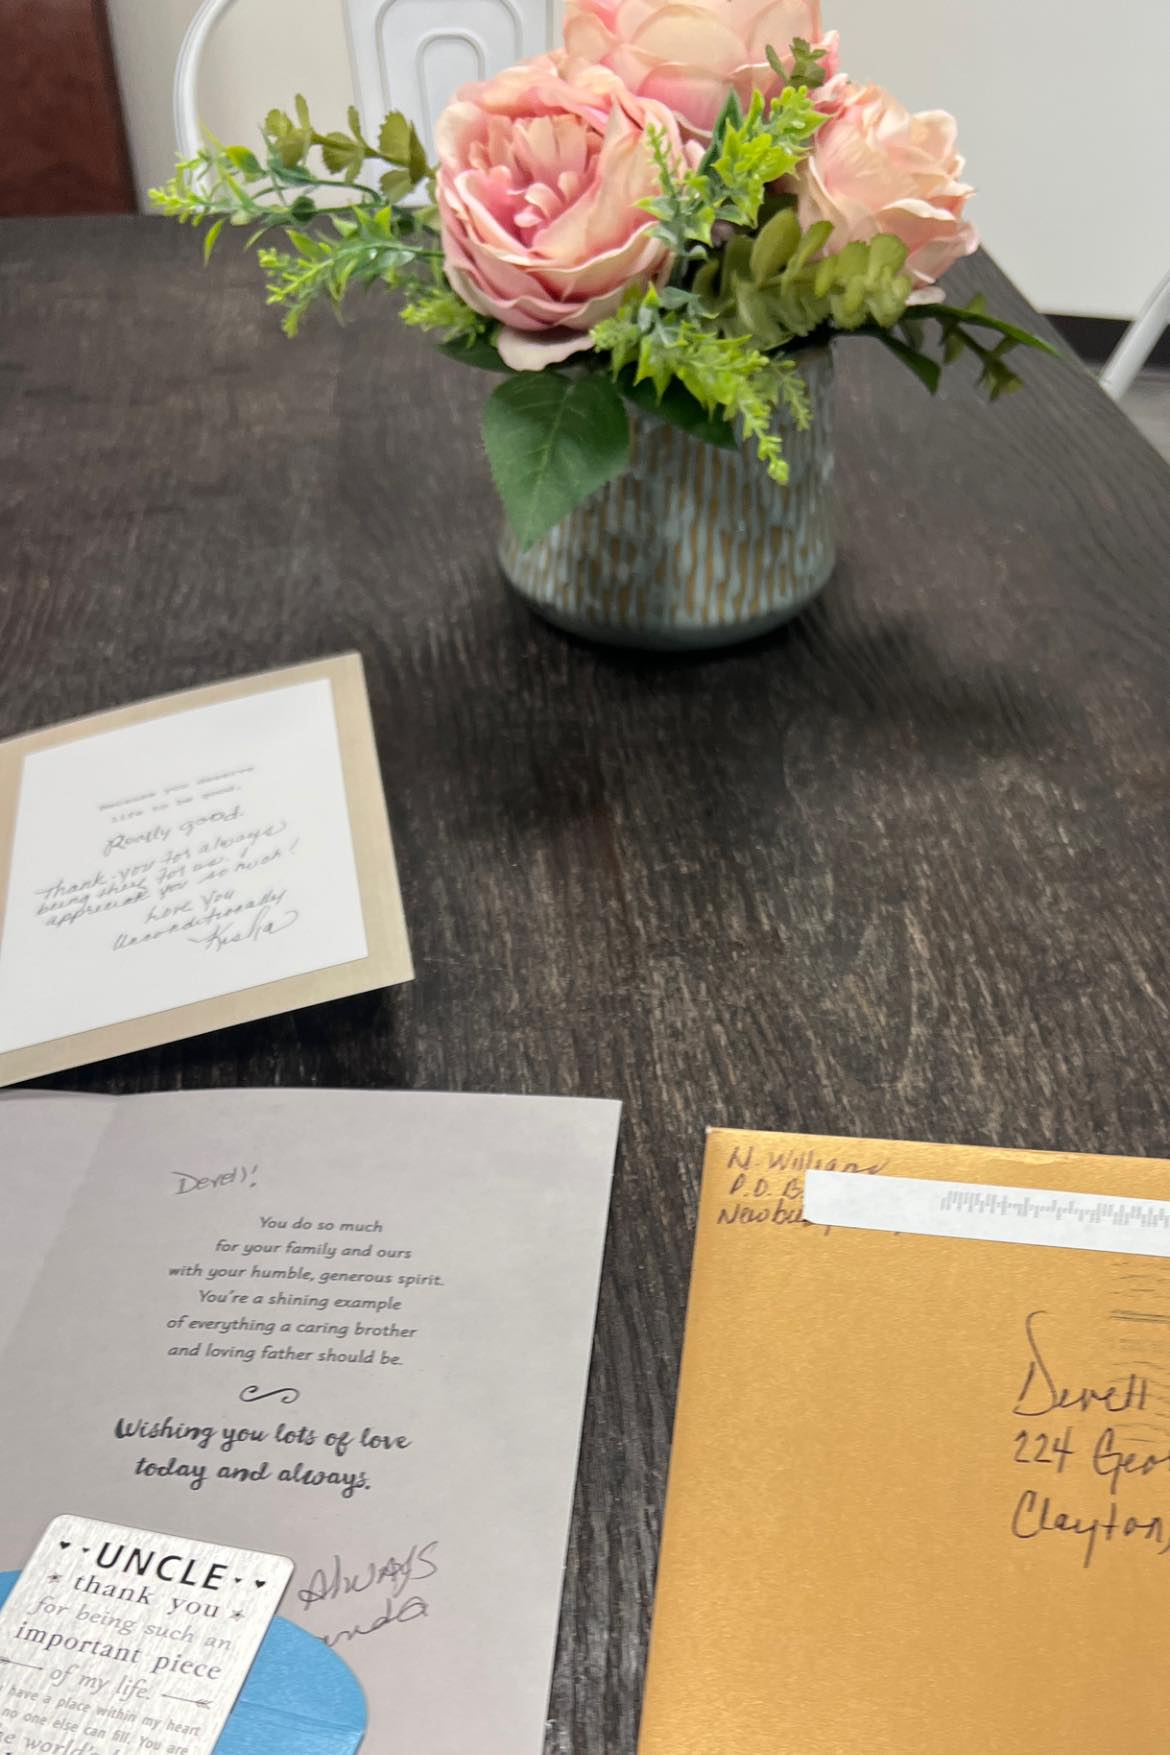 Because you deserve
life to be good.
Really good.
Thank you for always
being there for us. I
appreciate you so much!
Love you
Unconditionally
Kisha
Derell!
You do so much
for your family and ours
with your humble, generous spirit.
You're a shining example
of everything a caring brother
and loving father should be.
Wishing you lots of love
today and always.
Always
UNCLE
thank you
for being such an
important piece
of my life.
have a place within my heart
no one else can fill. You are
world's
N. Williams
P.O. B
Newbu
Derell
224 Geo
Clayton,